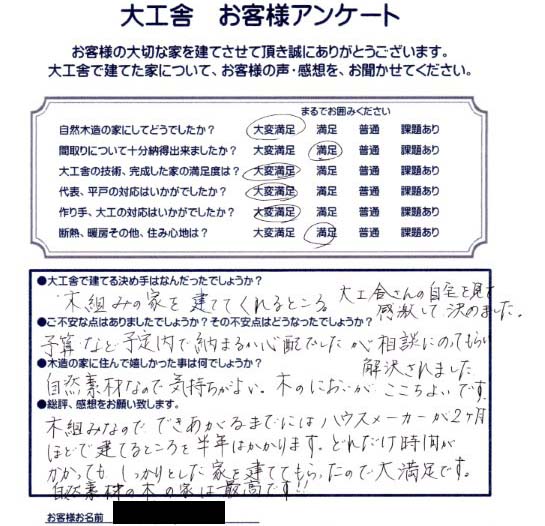 大工舎　お客様アンケート
お客様の大切な家を建てさせて頂き誠にありがとうございます。
大工舎で建てた家について、お客様の声・感想を、お聞かせてください。
まるでお囲みください
自然木造の家にしてどうでしたか？　大変満足　満足　普通　課題あり
間取りについて十分納得出来ましたか？　大変満足　満足　普通　課題あり
大工舎の技術、完成した家の満足度は？　大変満足　満足　普通　課題あり
代表、平戸の対応はいかがでしたか？　大変満足　満足　普通　課題あり
作り手、大工の対応はいかがでしたか？　大変満足　満足　普通　課題あり
断熱、暖房その他、住み心地は？　大変満足　満足　普通　課題あり
●大工舎で建てる決め手はなんだったでしょうか？
木組みの家を建ててくれるところ　大工舎さんの自宅を見て
感激して決めました。
●ご不安な点はありましたでしょうか？その不安点はどうなったでしょうか？
予算など予定内で納まるか心配でしたが相談にのってもらい
解決されました
●木造の家に住んで嬉しかった事は何でしょうか？
自然素材なので気持ちがよい。木のにおいがここちよいです。
●総評、感想をお願い致します。
木組みなので できあがるまでにはハウスメーカーが2ヶ月
ほどで建てるところを半年はかかります。どれだけ時間が
かかっても しっかりとした家を建ててもらったので大満足です。
自然素材の木の家は最高です!!
お客様お名前